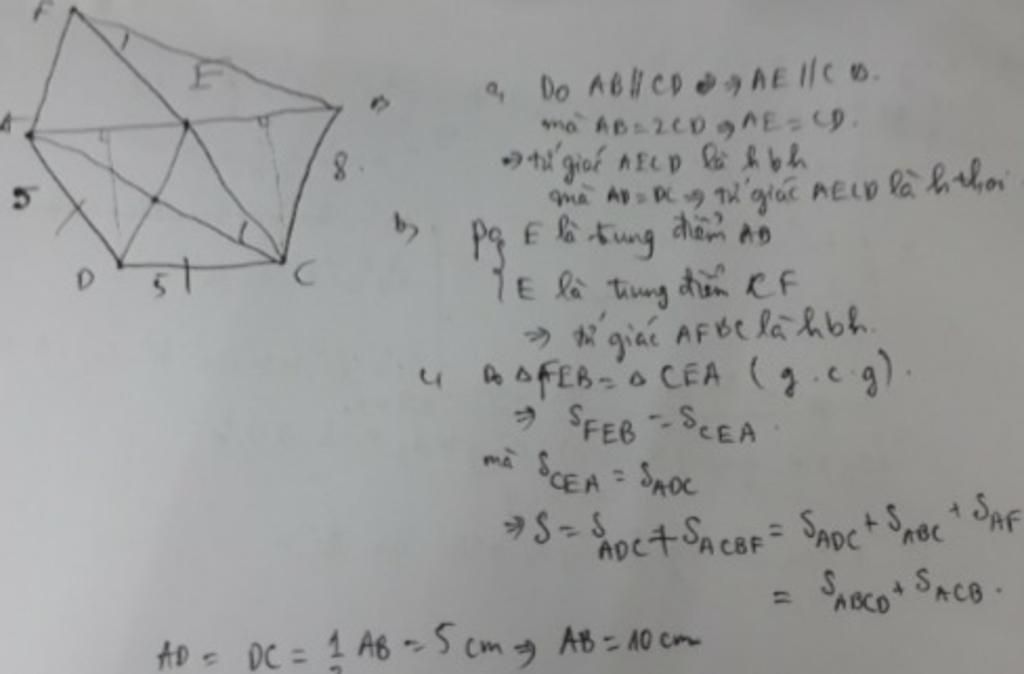 F
E
A
B
5
8
D
5
C
a, Do AB // CD ⇒ AE // CD.
mà AB = 2CD ⇒ AE = CD.
⇒ tứ giác AECD là hbh
mà AD = DC ⇒ tứ giác AECD là h.thoi
b, E là trung điểm AB
E là trung điểm CF
⇒ tứ giác AFBC là hbh.
c, Do Δ FEB = Δ CEA (g.c.g).
⇒ S_FEB = S_CEA.
mà S_CEA = S_ADC
⇒ S = S_ADC + S_ACBF = S_ADC + S_ABC + S_AF
= S_ABCD + S_ACB.
AD = DC = 1/2 AB = 5 cm ⇒ AB = 10 cm